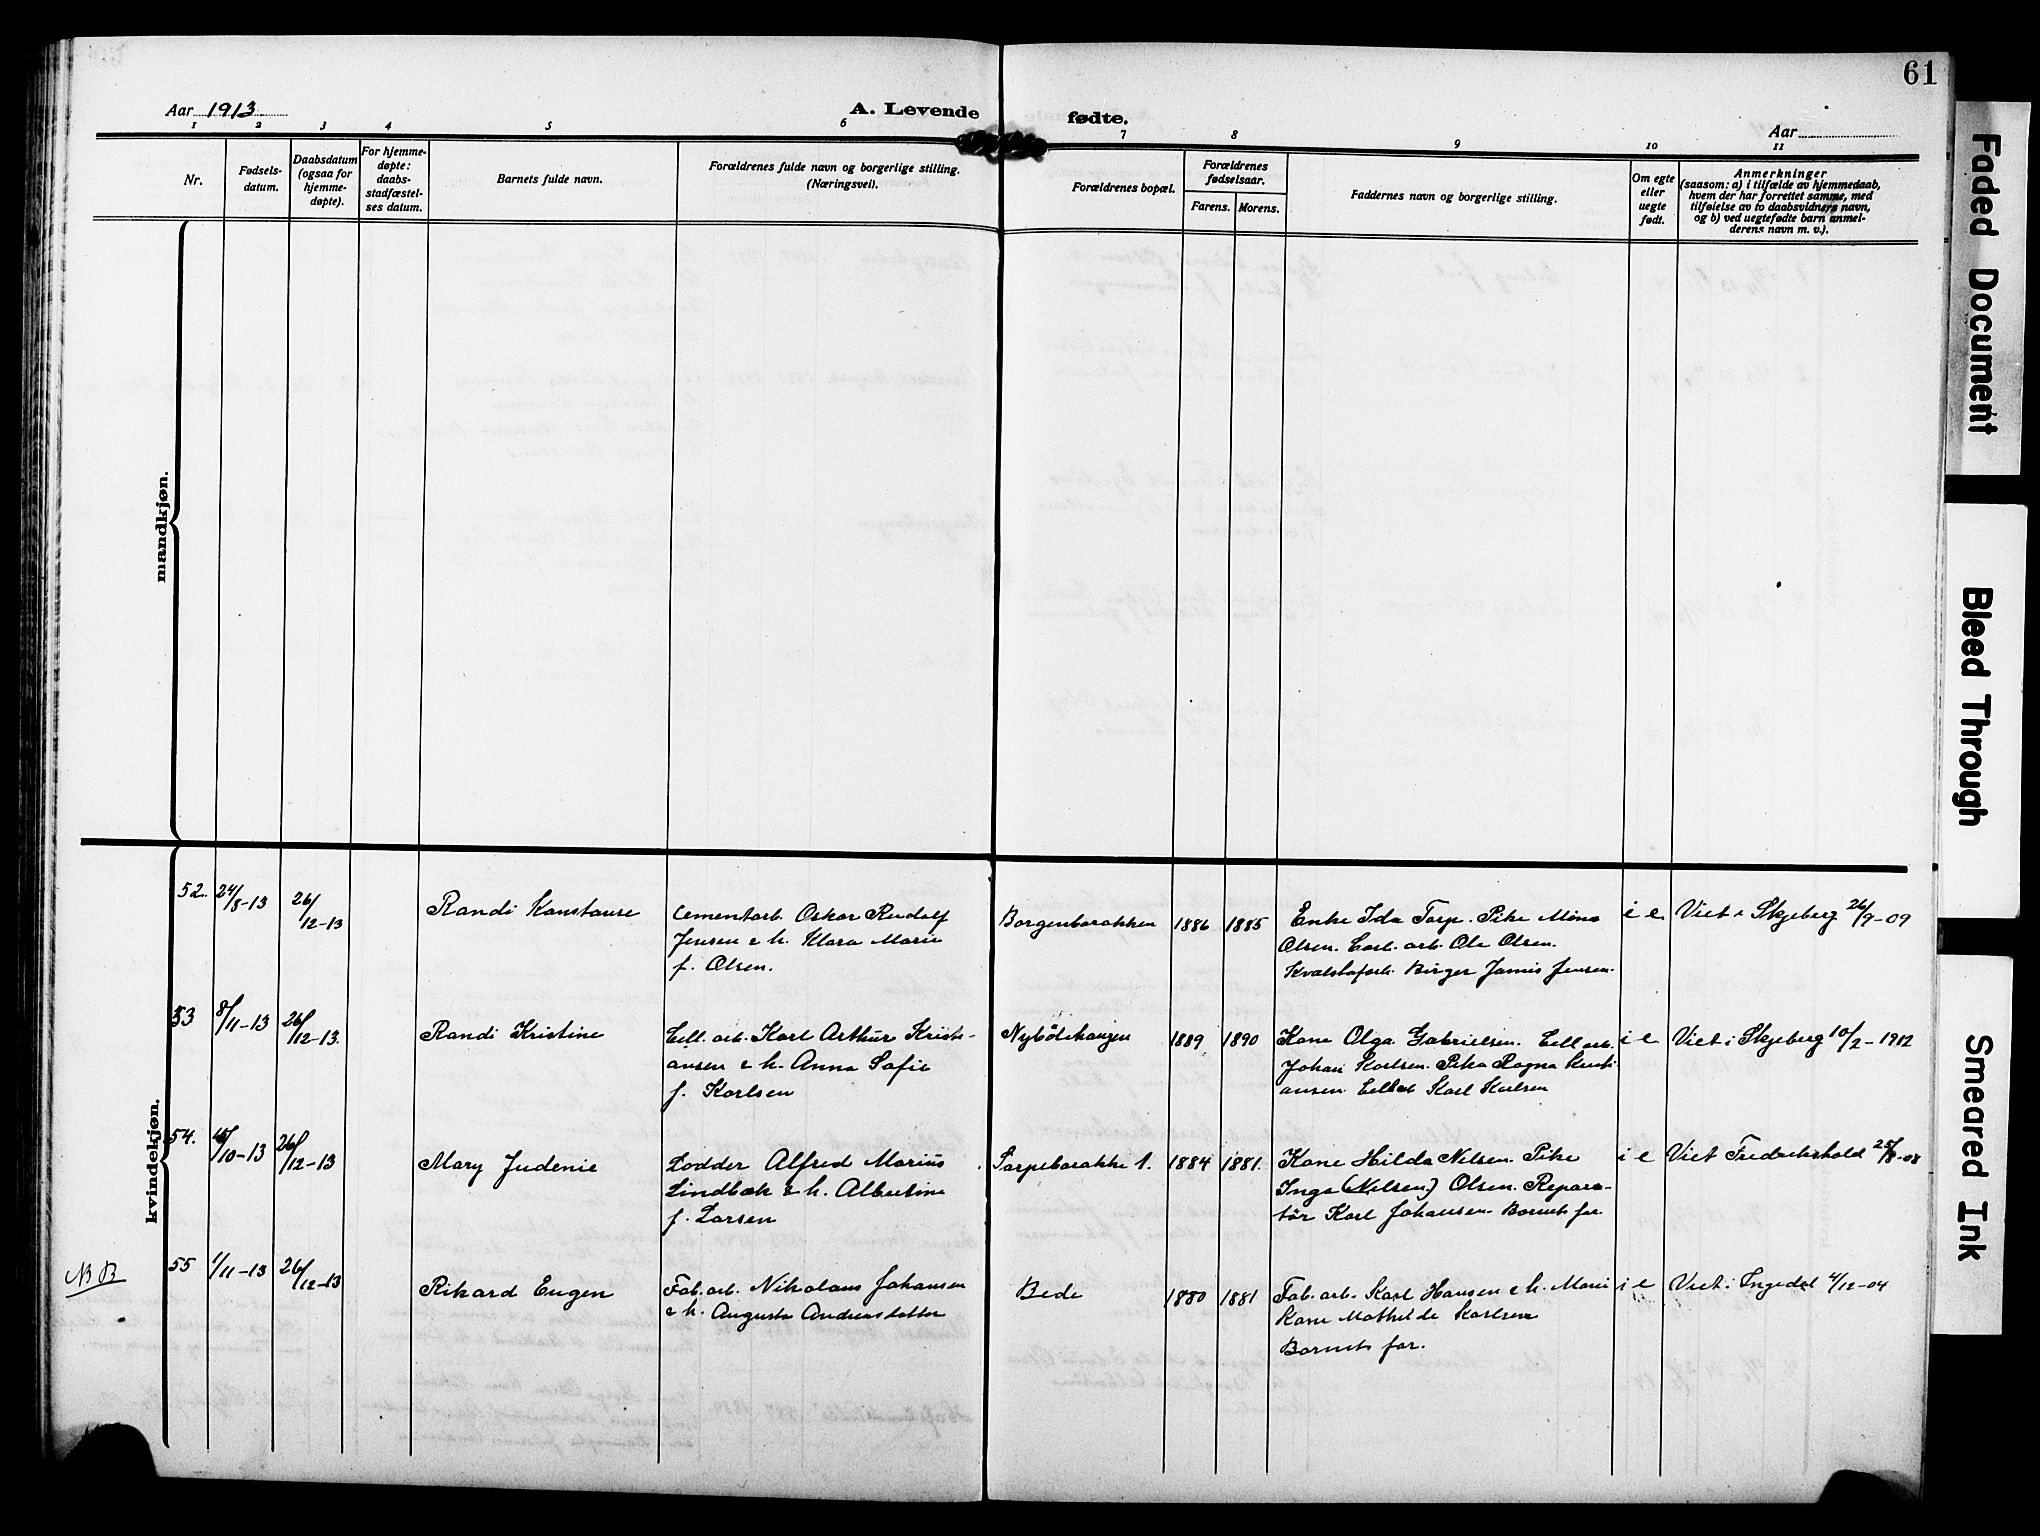 61
Aar 1913.
A. Levende fødte.
Aar
1 2 3 4 5 6 7 8 9 10 11
Nr.
Fødsels-
datum.
Daabsdatum
(ogsaa for
hjemme-
døpte).
For hjemme-
døpte:
daabs-
stadfæstel-
ses datum.
Barnets fulde navn.
Forældrenes fulde navn og borgerlige stilling.
(Næringsvei).
Forældrenes bopæl.
Forældrenes
fødselsaar.
Farens. Morens.
Faddernes navn og borgerlige stilling.
Om egte
eller
uegte
født.
Anmerkninger
(saasom: a) i tilfælde av hjemmedaab,
hvem der har forrettet samme, med
tilføielse av to daabsvidners navn,
og b) ved uegtefødte barn anmel-
derens navn m. v.).
mandkjøn.
kvindekjøn.
52. 24/8-13
26/12-13
Randi Konstanse
Cementarb. Oskar Rudolf
Jensen & h. Klara Marie
f. Olsen.
Borgenbarakken
1886 1885
Enke Ida Torp. Pike Mina
Olsen. arb. Ole Olsen.
Birger Jensen.
i e
Viet i Skjeberg 26/9-09
53 8/11-13
26/12-13.
Randi Kristine
Cell. arb. Karl Arthur Kristi-
ansen & h. Anna Sofie
f. Karlsen
1889 1890
Kone Olga Gabrielsen. Cell arb.
Johan Karlsen. Pike Ragna Kristi-
ansen Karl Karlsen
i e
Viet i Skjeberg 10/2-1912
54. 15/10-13
26/12-13
Mary Judenie
Lodder Alfred Marius
Lindbæk & h. Albertine
f. Larsen
Torpebarakke 1.
1884 1881.
Kone Hilda Nilsen. Pike
Inga (Nilsen) Olsen. Repara-
tør Karl Johansen. Barnets far.
i e
Viet Fredrikshald 25/8-08
NB
55 1/11-13
26/12-13
Rikard Eugen
Fab. arb. Nikolaus Johansen
& h. Augusta Andreasdatter
Bede
1880 1881
Fab. arb. Karl Hansen & h. Marie
Kone Mathilde Karlsen
Barnets far.
i e
Viet i Ingedal 4/12-04
Faded Document
Bleed Through
Smeared Ink